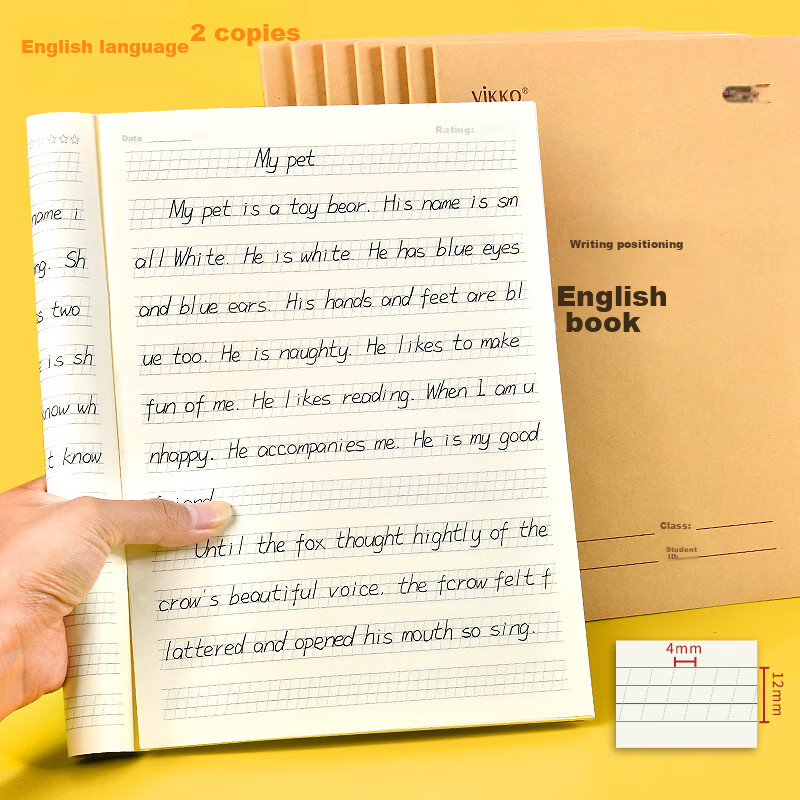 English language 2 copies
VIKKO®
Date
Rating:
My pet
My pet is a toy bear. His name is sm
all White. He is white. He has blue eyes
and blue ears. His hands and feet are bl
ue too. He is naughty. He likes to make
fun of me. He likes reading. When I am u
nhappy. He accompanies me. He is my good
friend
Until the fox thought hightly of the
crow's beautiful voice. the fcrow felt f
lattered and opened his mouth so sing.
name i
ng. Sh
s two
is sh
know wh
t know
Writing positioning
English
book
Class:
Student
ID:
4mm
12mm